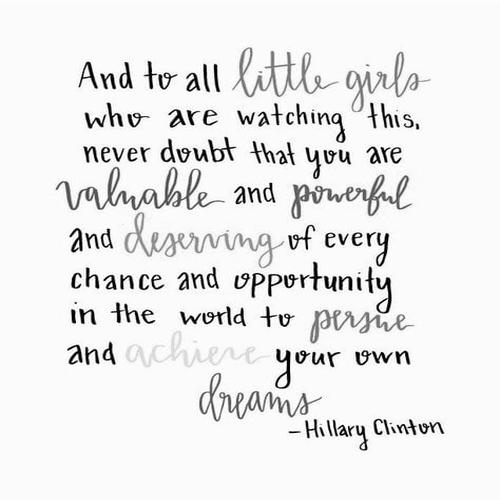 And to all little girls
who are watching this,
never doubt that you are
valuable and powerful
and deserving of every
chance and opportunity
in the world to persue
and achieve your own
dreams
-Hillary Clinton